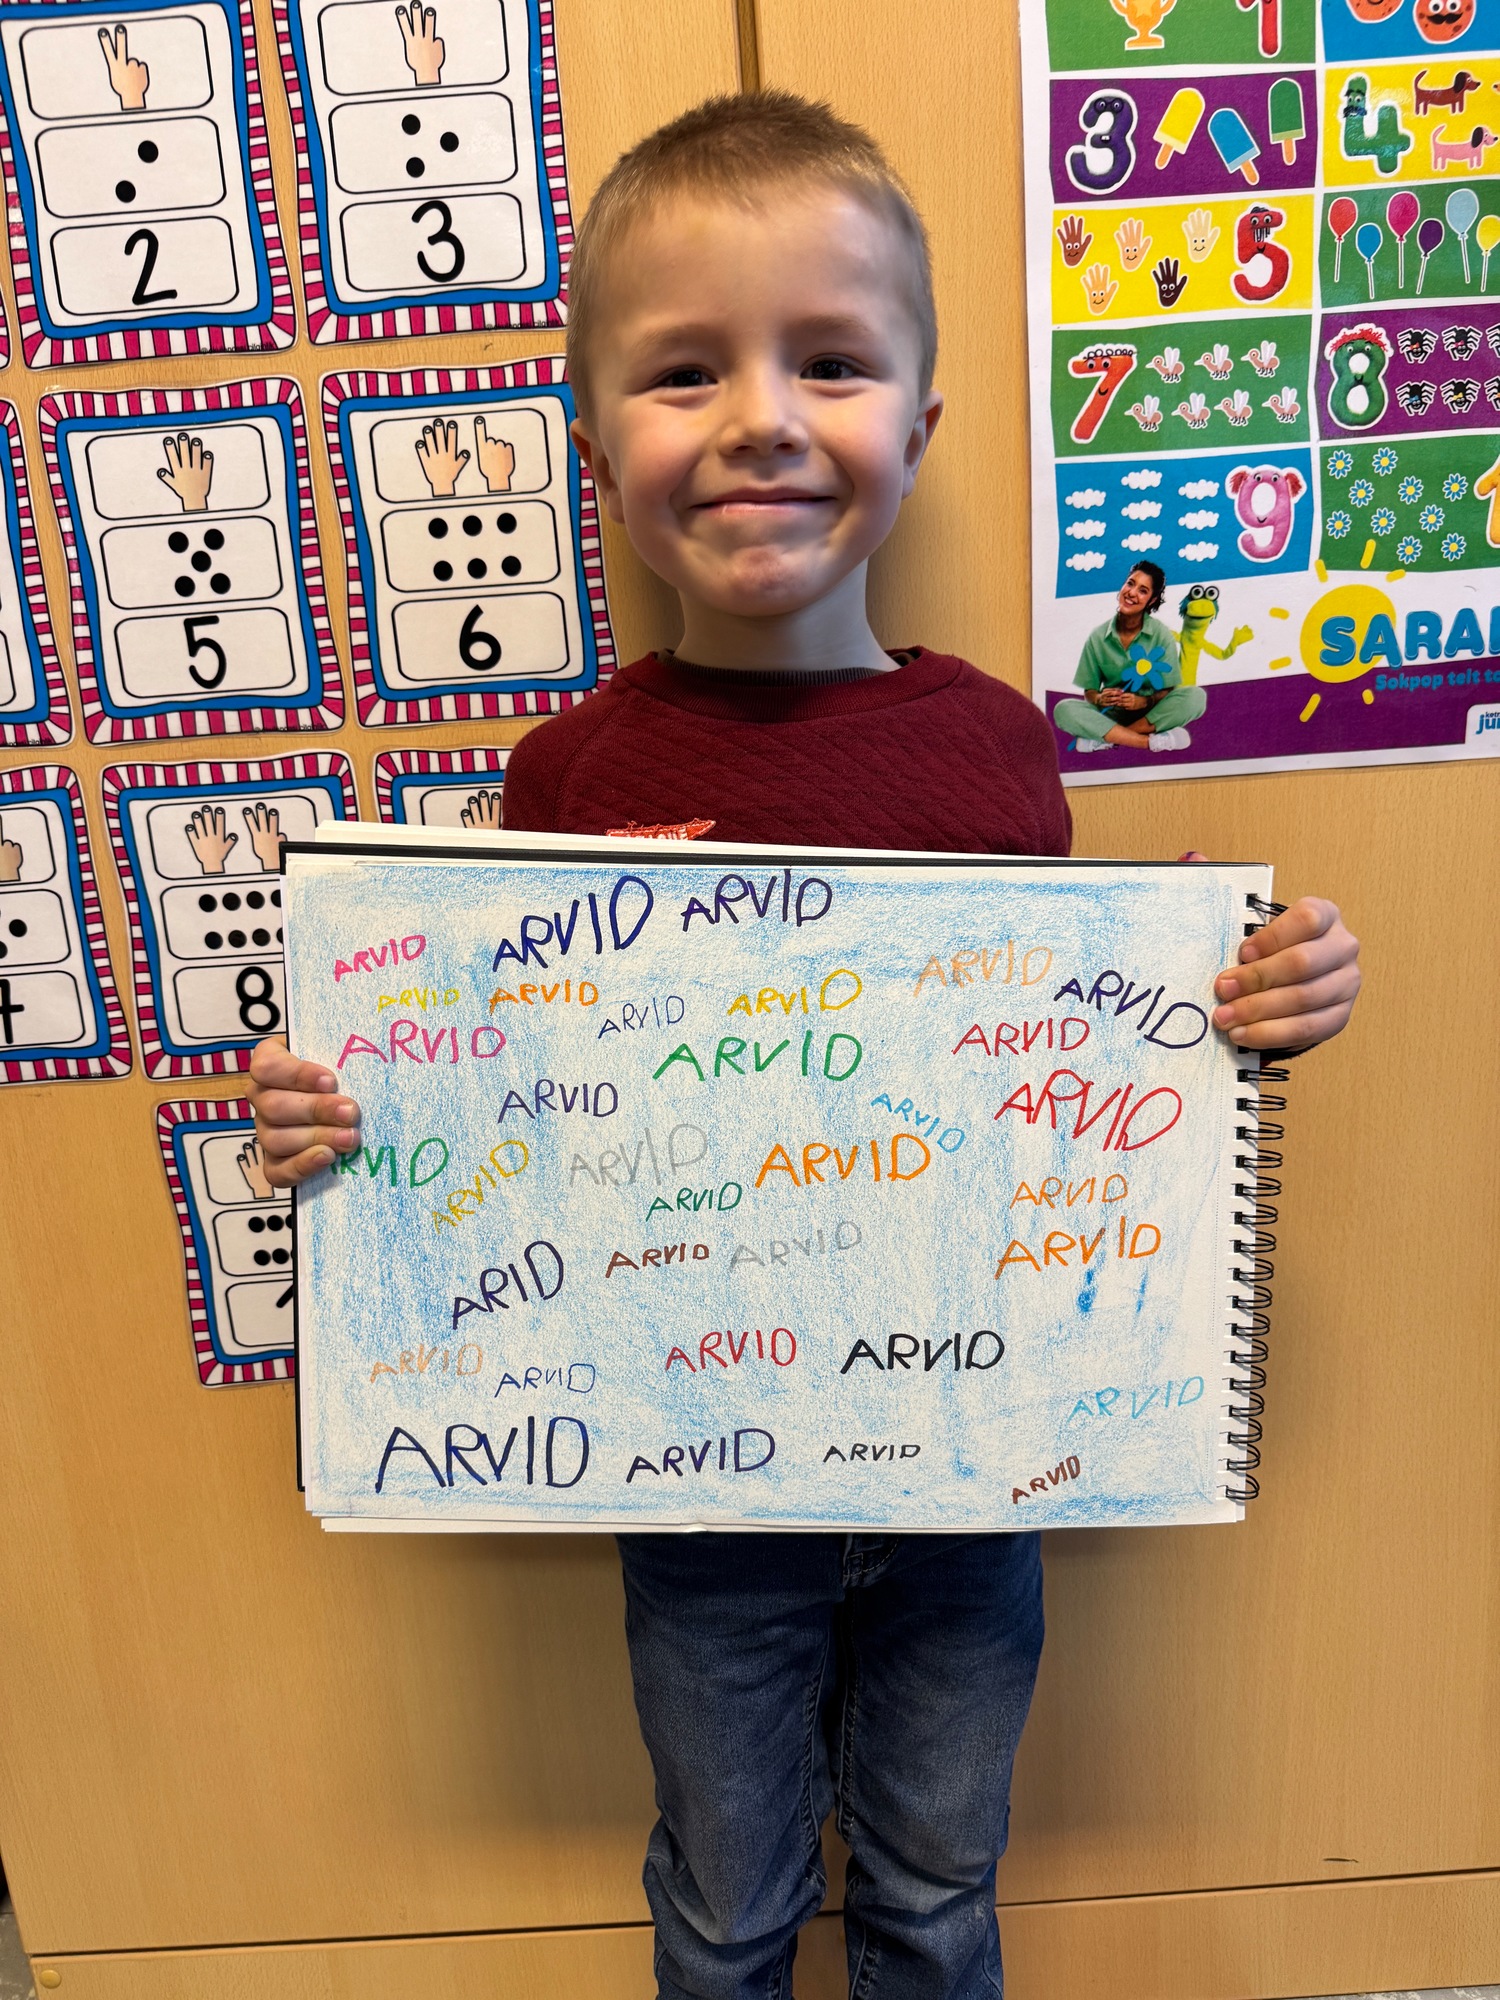 2
3
5
6
8
3
4
5
7
8
9
SARAI
Sokpop telt to
ketn
ju
ARVID ARVID
ARVID
ARVID
ARVID ARVID ARVID ARVID
ARVID
ARVID
ARVID
ARVID
ARVID
ARVID
ARVID
ARVID
RVID
ARVID
ARVID
ARVID
ARVID
ARVID
ARVID
ARID
ARVID
ARVID
ARVID
ARVID
ARVID
ARVID
ARVID
ARVID
ARVID
ARVID
ARVID
ARVID